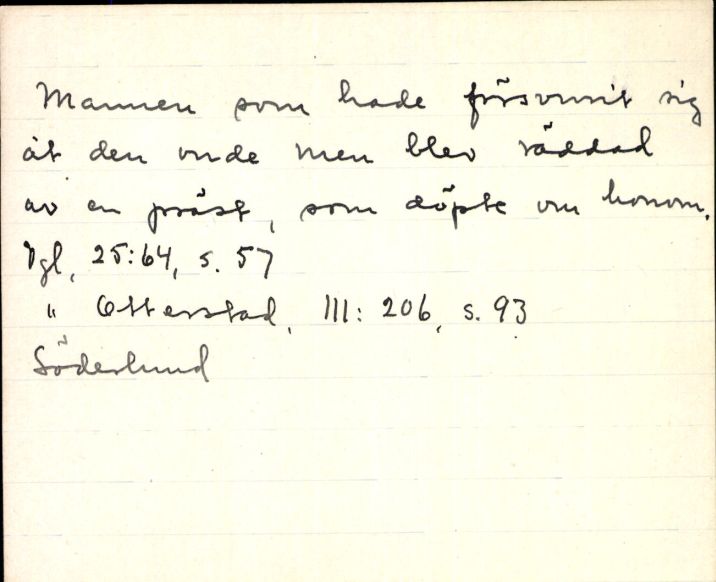 Mannen som hade försvurit sig
åt den onde men blev räddad
av en präst, som döpte om honom.
Vgl, 25:64, s. 57
" Otterstad, III: 206, s. 93
Söderlund